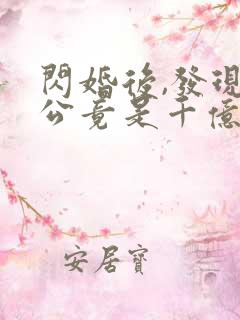 閃婚後,發現
公竟是千億
安居寶